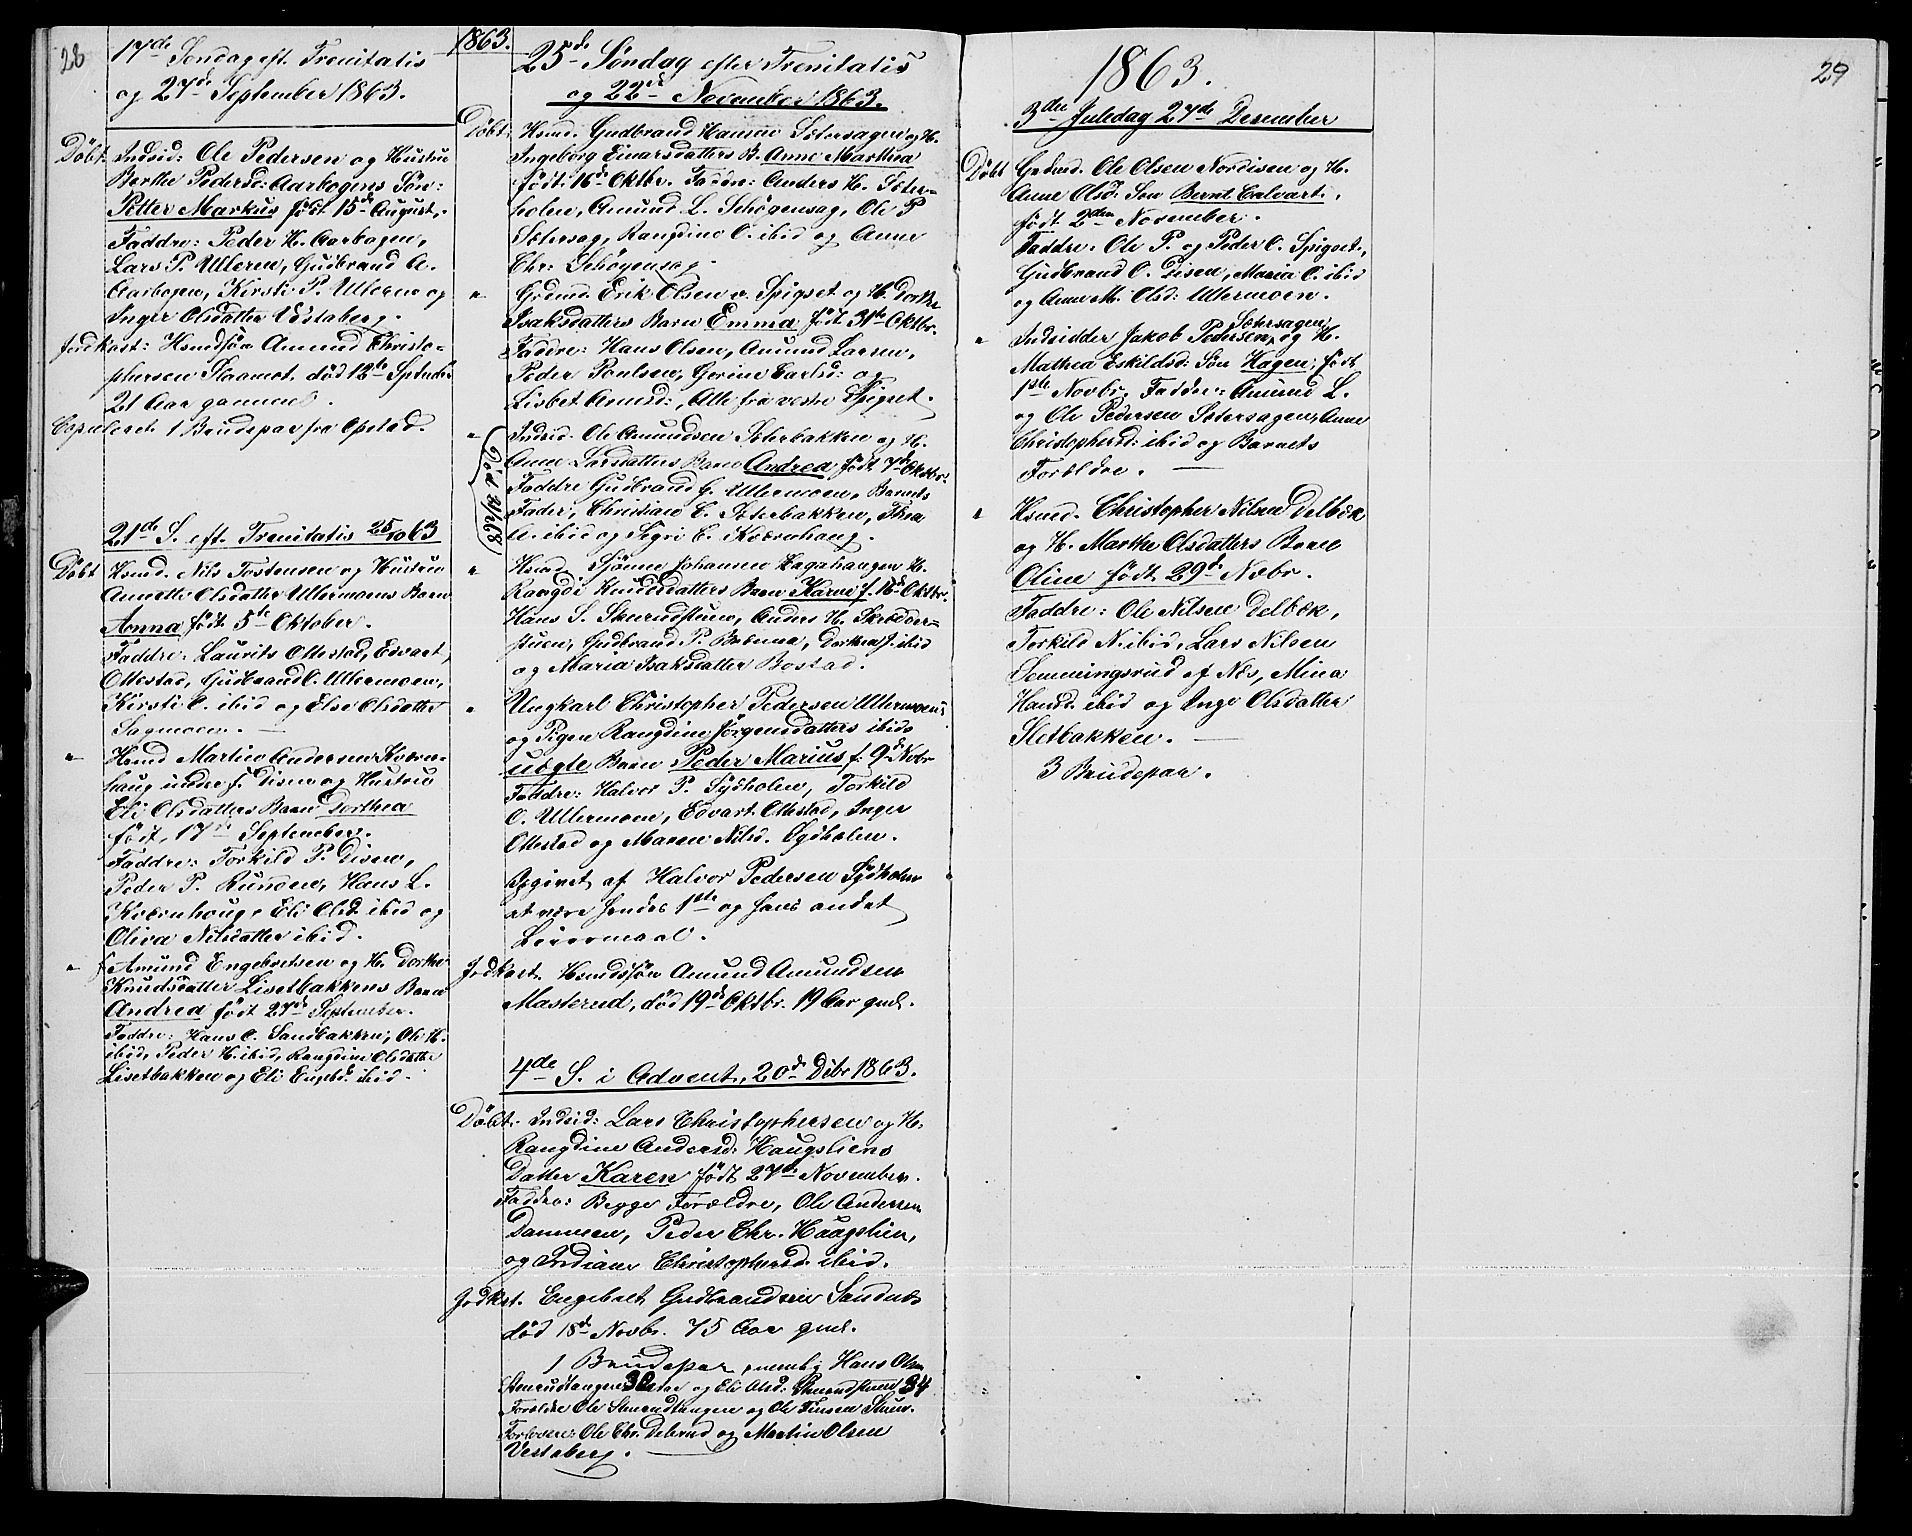 28
17de Søndag eft. Trenitatis
og 27de September 1863.
Döbt. Indsid: Ole Pedersen og Hustru
Berthe Pedersd: Aarbogens Søn:
Petter Markus født 15de August.
Faddre: Peder H. Aarbogen,
Lars P. Ulleren, Gudbrand A.
Aarbogen, Kirsti P. Ulleren og
Inger Olsdatter Udstaberg.
Jordkast: Hsmdsøn Amund Christo-
phersen Slaamot. død 12te Septmbr
21 Aar gammel.
Copuleret 1 Brudepar fra Opstad.
21de S. eft. Trenitatis 25/10 63
Döbt Hsmd. Nils Tostensen og Hustru
Annette Olsdatter Ullermoens Barn
Anna født 5te Oktober.
Faddre: Laurits Ottestad, Edvart
Ottestad, Gudbrand O. Ullermoen,
Kirsti O. ibid og Else Olsdatter
Sagmoen.
" Hsmd Martin Andersen Kværn-
haug under s. Disen og Hustru
Eli Olsdatters Barn Dorthea
født 17de September.
Faddre: Torkild P. Disen,
Peder P. Runden, Hans L.
Kværnhoug, Eli Olsd. ibid og
Oliva Nilsdatter ibid.
" Amund Engebretsen og H. Dorthe
Knudsdatter Lisetbakkens Barn
Andrea født 27de September.
Faddre: Hans O. Sandbakken, Ole H.
ibid, Peder H. ibid, Rangdine Olsdatter
Lisetbakken og Eli Engebd. ibid.
1863.
25de Søndag efter Trenitatis
og 22de November 1863.
Döbt. Hsmd. Gudbrand Hansen Sætersagen og H.
Ingeborg Einarsdatters B. Anne Marthea
født 16de Oktbr. Faddre: Anders H. Sæter-
holen, Amund L. Schøgensag, Ole P
Sætersag, Rangdine O. ibid og Anne
Chr: Schøgensag.
" Grdmd. Erik Olsen v. Spigset og H. Dorthe
Isaksdatters Barn Emma født 31te Oktbr.
Faddre: Hans Olsen, Amund Larsen,
Peder Poulsen, Gorine Carlsd: og
Lisbet Arnesd:, Alle fra vestre Spigset.
" Indsid. Ole Amundsen Sæterbakken og H.
Anne Larsdatters Barn Andrea født 7de Oktbr.
Faddre Gudbrand G. Ullermoen, Barnets
Fader, Christian C. Sæterbakken, Thea
A. ibid og Sigri C. Kværnhaug.
" Hsmd. Sjønne Johannes Hagahaugen H.
Rangdi Knudsdatters Barn Karne f. 16de Oktbr.
Hans S. Skrerudstuen, Anders H. Skrædder-
stuen, Gudbrand P. Brbrua, Dorthea J. ibid
og Maria Isaksdatter Bostad.
" Ungkarl Christopher Pedersen Ullermoens
og Pigen Rangdine Jørgensdatters ibids
uægte Barn Peder Marius f. 9de Novbr
Faddre: Halvor P. Sydholen, Torkild
O. Ullermoen, Edvart Ottestad, Inger
Ottestad og Maren Nilsd. Sydholen.
Opgivet af Halvor Pedersen Sydholen
at være hendes 1ste og hans andet
Leiermaal.
Jodkast. Hsmdssøn Amund Amundsen
Masterud, død 19de Oktbr. 19 Aar gml.
4de S. i Advent, 20de Dcbr 1863.
Döbt. Indsid: Lars Christophersen og H.
Rangdine Andersd: Haugsliens
Datter Karen født 27de November.
Faddre: Begge Forældre, Ole Andersen
Dammen, Peder Chr. Haugslien,
og Indiane Christophersd. ibid.
Jodkst. Engebret Gudbrandsen Sandnæs
død 18de Novbr. 75 Aar gml.
1 Brudepar, nemlig Hans Olsen
Stenrudtangen 30 Aar og Eli Olsd: Skrerudstuen 34
Forældre Ole Stenrudtangen og Ole Finsen Stuen.
Forlovere: Ole Chr. Delerud og Martin Olsen
Vestaberg.
Död 31/12 63
1863.
29
3die Juledag 27de Desember
Döbt Grdmd. Ole Olsen Nordisen og H.
Anne Olsd: Søn Bernt Edvart.
født 2den November.
Faddre. Ole P. og Peder O. Spigset,
Gudbrand O. Disen, Maria O. ibid
og Anne M. Olsd: Ullermoen.
" Indsidder Jakob Pedersen Sætersagen og H.
Mathea Eskildsd: Søn Hagen; født
1ste Novbr. Faddre: Amund L.
og Ole Pedersen Sætersagen, Anne
Christophersd: ibid og Barnets
Forældre.
" Hsmd. Christopher Nilsen Delbæk
og H. Marthe Olsdatters Barn
Oline født 29de Novbr.
Faddre: Ole Nilsen Delbæk,
Torkild N. ibid, Lars Nilsen
Semmingsrud af Næs, Mina
Hansd. ibid og Inge Olsdatter
Sletbakken.
3 Brudepar.